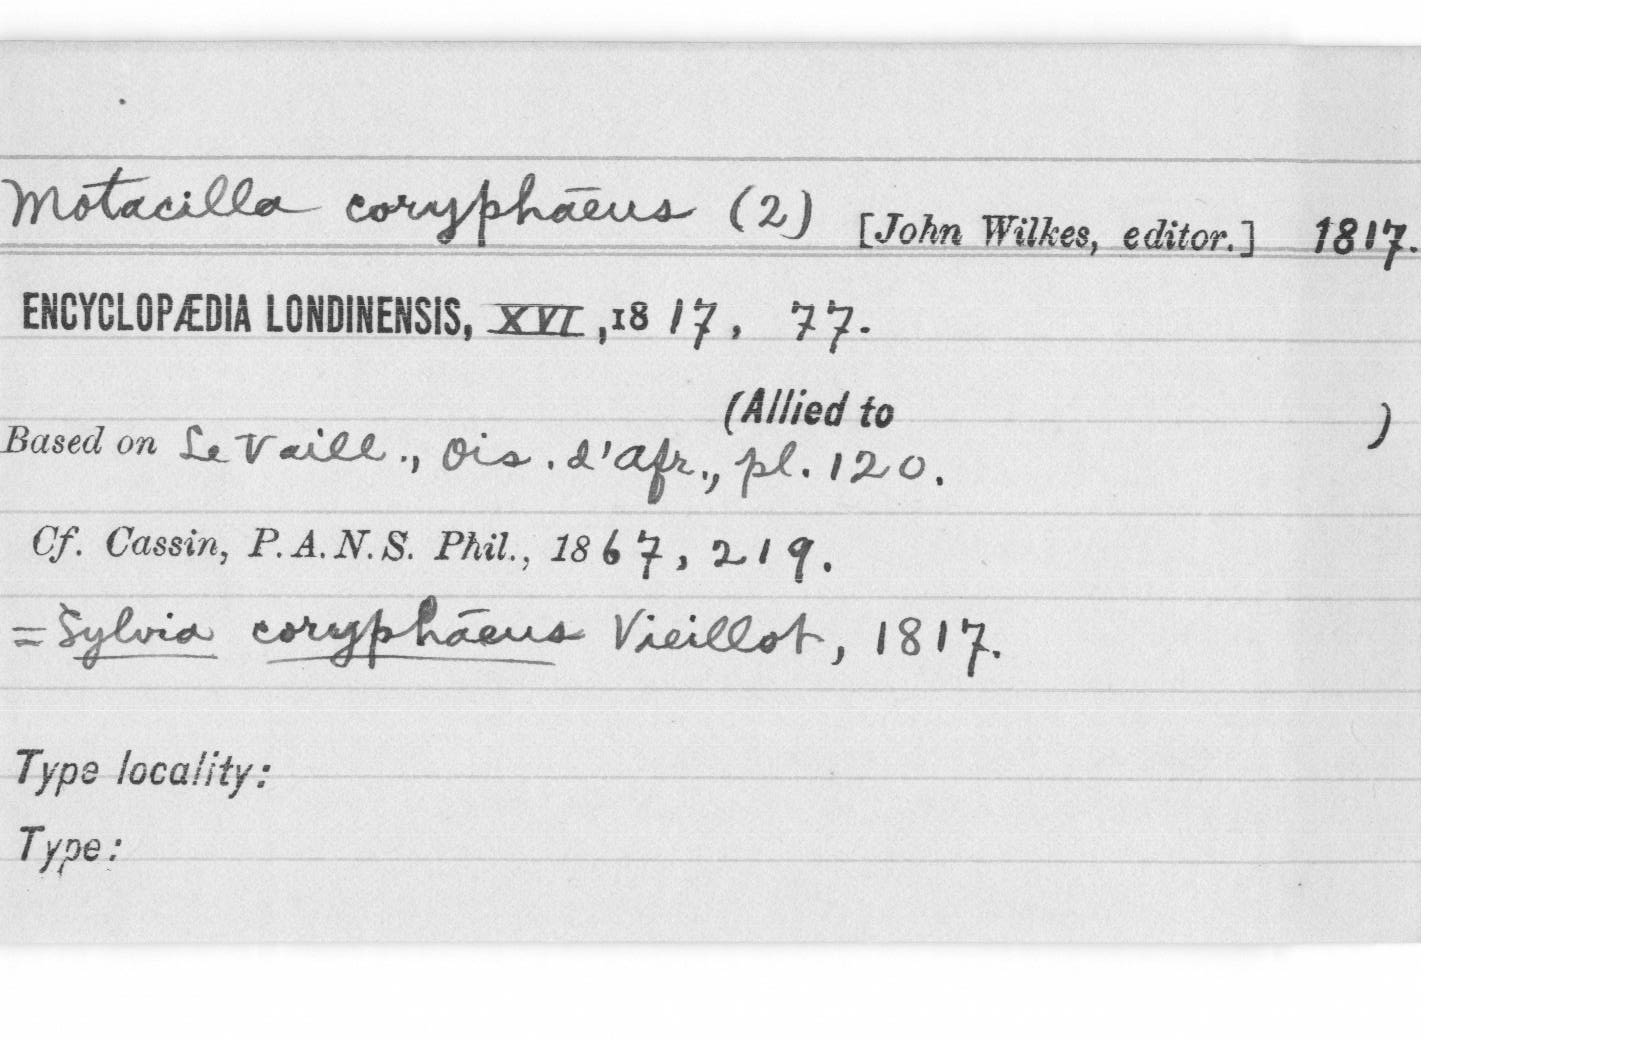 Motacilla coryphāeus (2) [John Wilkes, editor.] 1817.
ENCYCLOPÆDIA LONDINENSIS, XVI, 1817, 77.
(Allied to )
Based on Le Vaill., Ois. d'Afr., pl. 120.
Cf. Cassin, P. A. N. S. Phil., 1867, 219.
= Sylvia coryphāeus Vieillot, 1817.
Type locality:
Type: